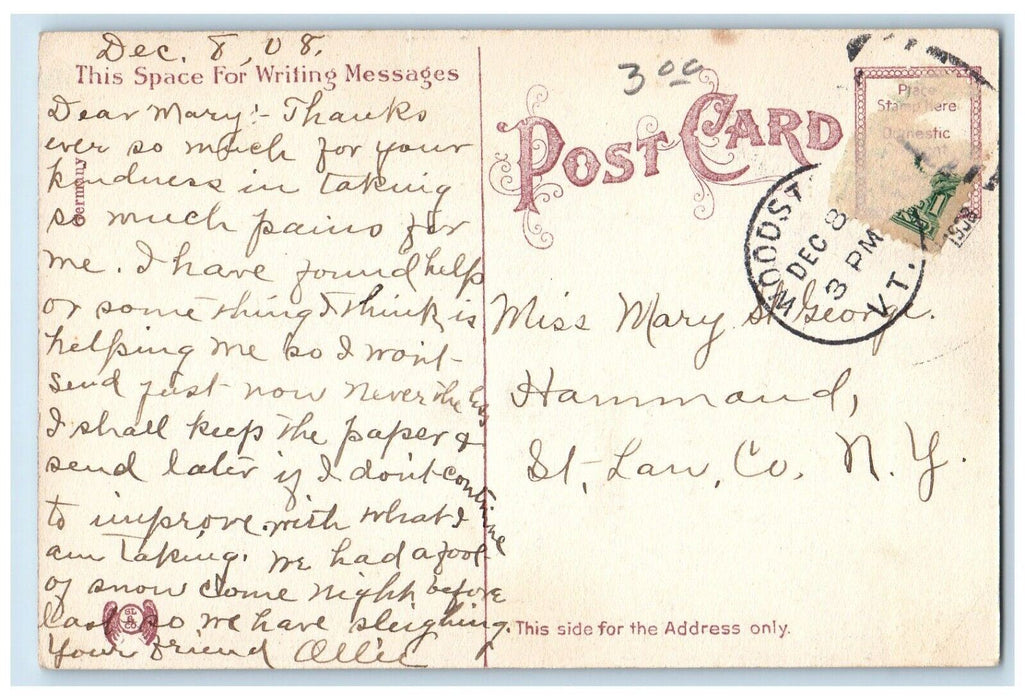 Dec. 8, 08.
This Space For Writing Messages
Dear Mary:- Thanks
ever so much for your
kindness in taking
so much pains for
me. I have found help
or something I think is
helping me so I wont
send just now never the less
I shall keep the paper &
send later if I dont continue
to improve with what I
am taking. We had a foot
of snow come night before
last so we have sleighing.
Your friend Ollie
Germany
SL
& CO
3 00
POST CARD
Place
Stamp here
Domestic
WOODST VT.
DEC 8
3 PM
1908
Miss Mary St George.
Hammond,
St. Law. Co. N. Y.
This side for the Address only.